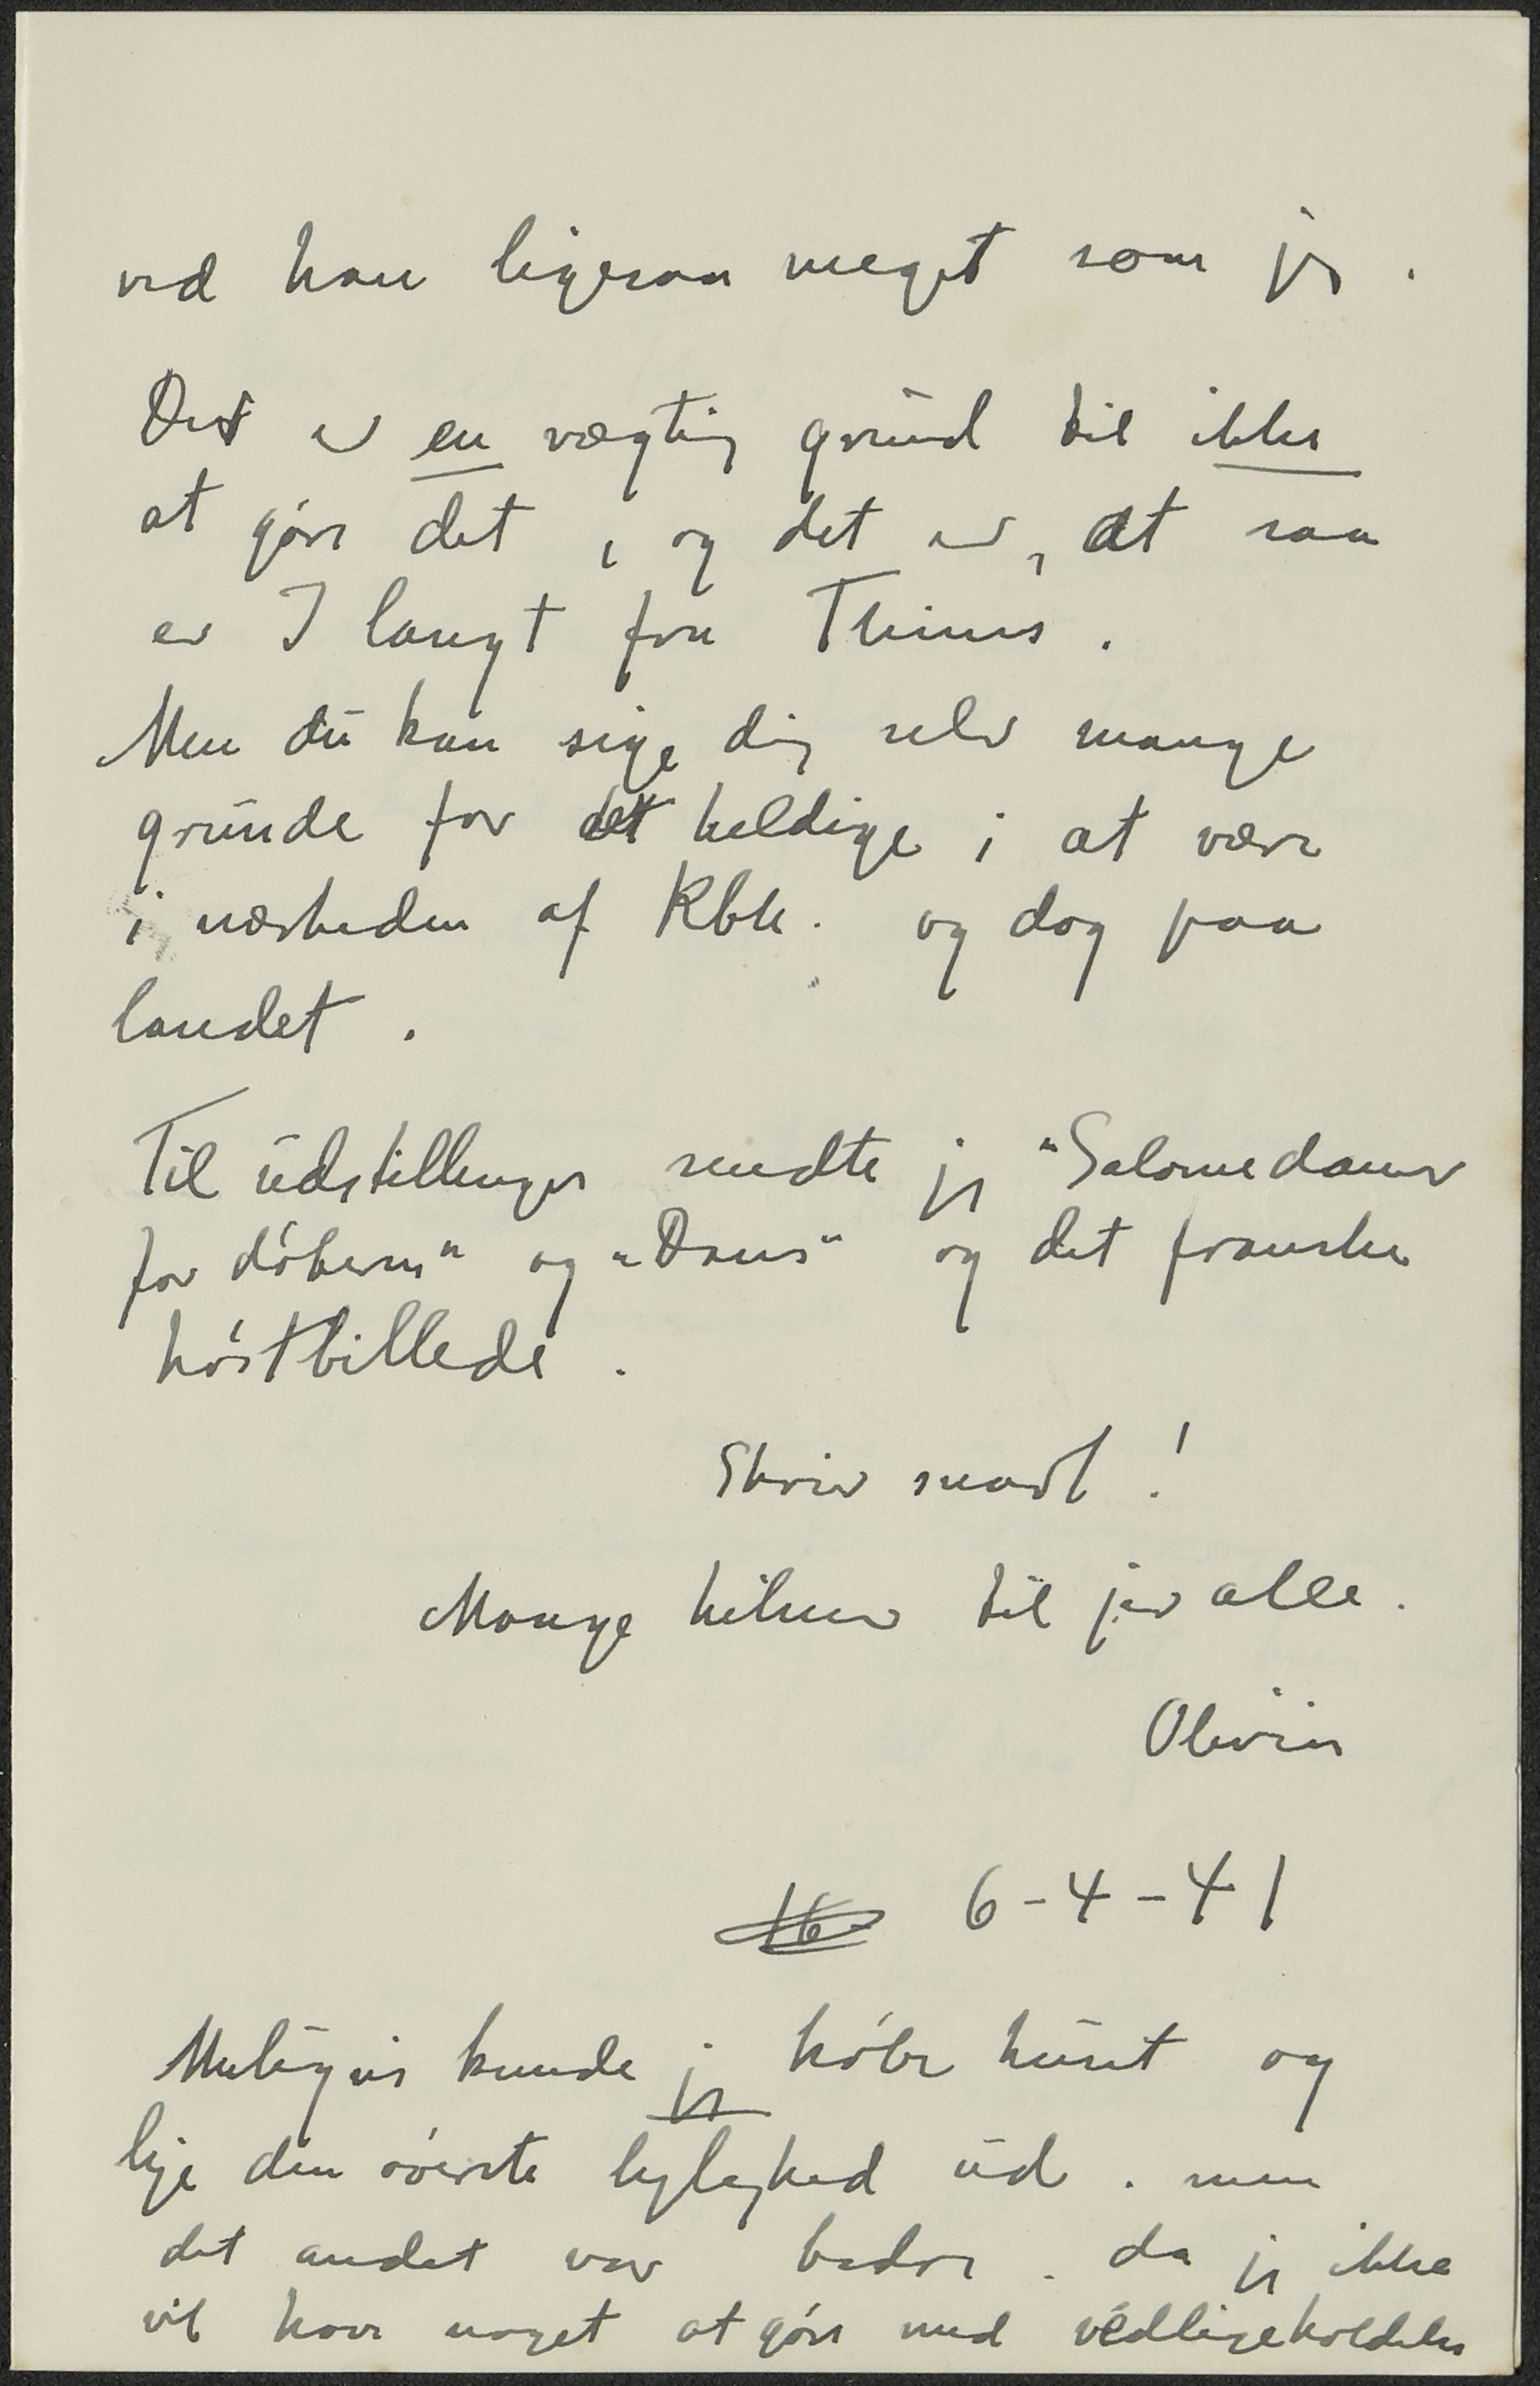 ved han ligesaa meget som jeg.
Det er en vægtig grund til ikke
at göre det, og det er, at saa
er I langt fra Thinus.
Men du kan sige dig selv mange
grunde for det heldige i at være
i nærheden af Kbh. og dog paa
landet.
Til udstillingen sendte jeg "Salomedans
for döberen" og "Dans" og det franske
höstbillede.
Skriv snart!
Mange hilsner til jer alle.
Olivia
16 6-4-41
Muligvis kunde jeg köbe huset og
leje den överste lejlighed ud. men
det andet var bedre. da jeg ikke
vil have noget at göre med vedligeholdelse